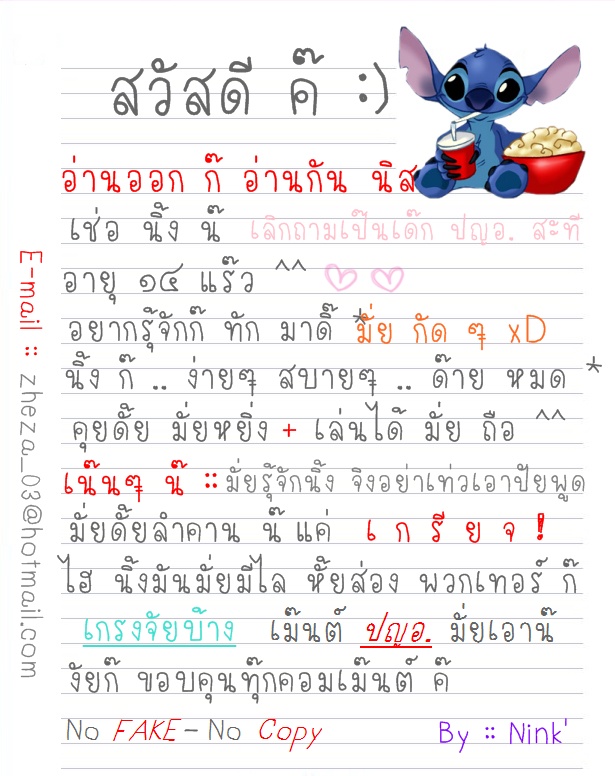 สวัสดี ค๊ :)
อ่านออก ก๊ อ่านกัน นิส
เช่อ นิ้ง น๊ เลิกถามเป๊นเด๊ก ปญอ. สะที
อายุ ๑๔ แร๊ว ^^ ♡ ♡
อยากรู้จักก๊ ทัก มาดิ๊ *มั่ย กัด ๆ xD
นิ้ง ก๊ .. ง่ายๆ สบายๆ .. ด๊าย หมด *
คุยดั้ย มั่ยหยิ่ง + เล่นได้ มั่ย ถือ ^^
เน๊นๆ น๊ :: มั่ยรู้จักนิ้ง จิงอย่าเท่วเอาปัยพูด
มั่ยดั้ยลำคาน น๊ แค่ เ ก รี ย จ !
ไฮ นิ้งมันมั่ยมีไล หั้ยส่อง พวกเทอร์ ก๊
เกรงจัยบ้าง เม๊นต์ ปญอ. มั่ยเอาน๊
งัยก๊ ขอบคุนทุ๊กคอมเม๊นต์ ค๊
No FAKE - No Copy
By :: Nink'
E-mail :: zheza_03@hotmail.com